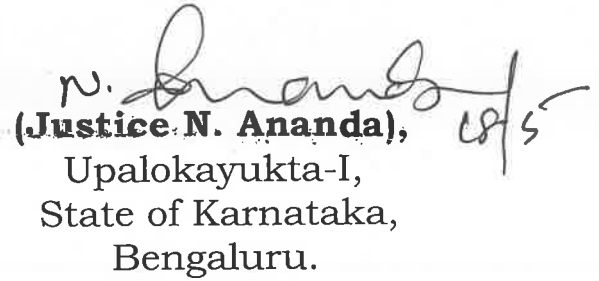 N. Ananda 18/5
(Justice N. Ananda),
Upalokayukta-I,
State of Karnataka,
Bengaluru.